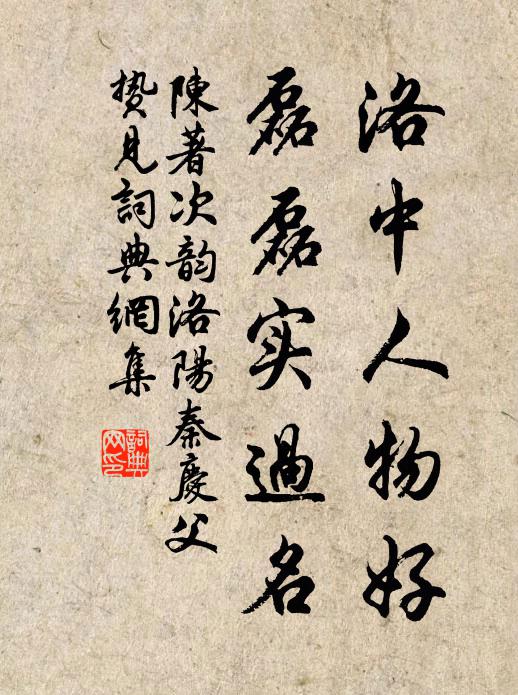 洛中人物好
磊磊实過名
陳著次韵洛陽秦慶父
贽見詞典網集
詞典網印